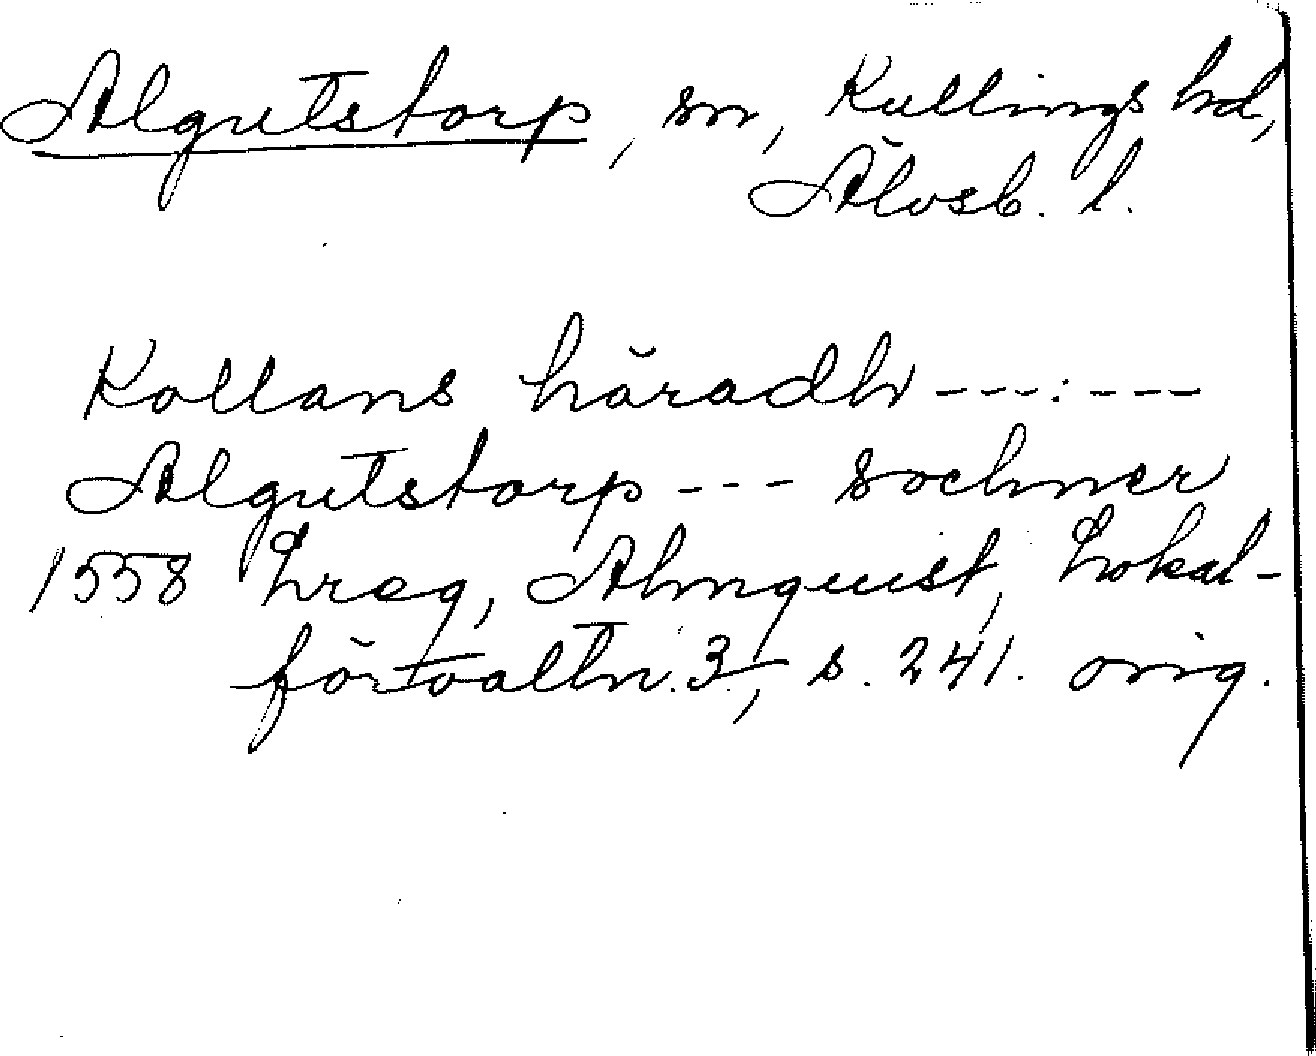 Algutstorp, sn, Kullings hd,
Älvsb. l.
Kollans häradh ---:---
Algutstorp --- sochner
1558 Lreg, Almquist, Lokal-
förvaltn. 3, s. 241. orig.